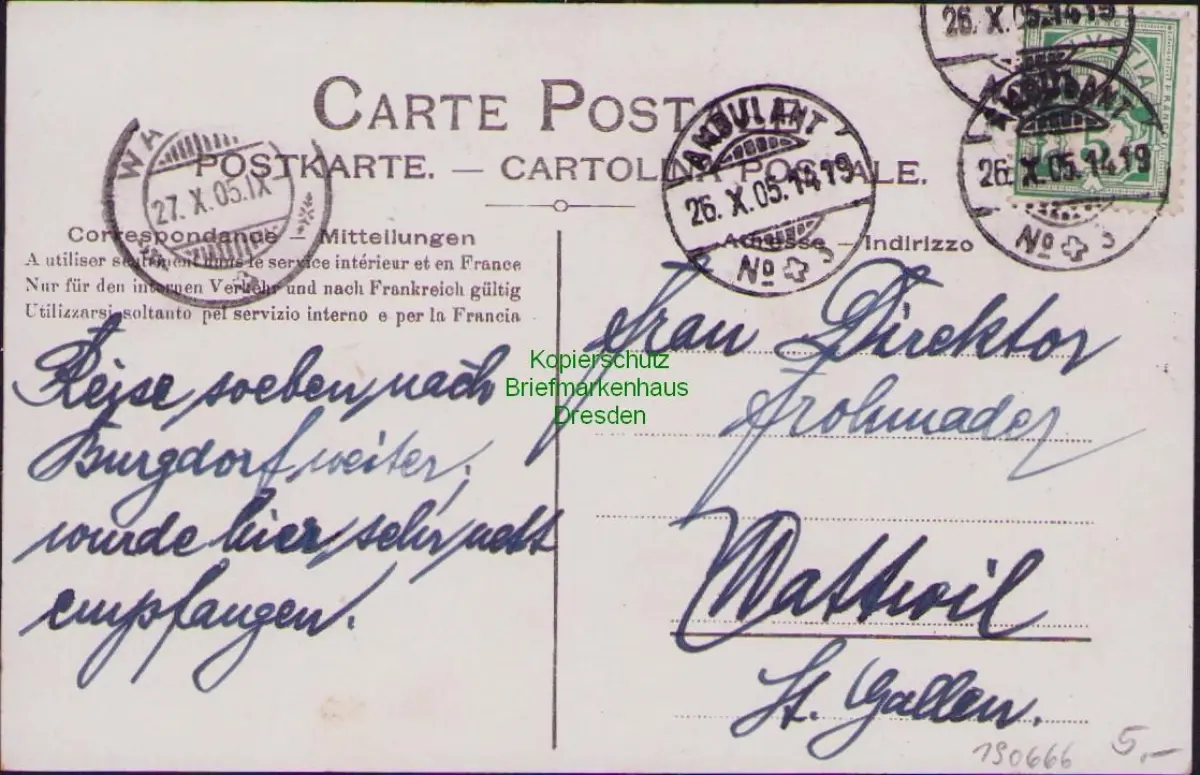 CARTE POSTALE
POSTKARTE. — CARTOLINA POSTALE.
Correspondance – Mitteilungen
A utiliser seulement dans le service intérieur et en France
Nur für den internen Verkehr und nach Frankreich gültig
Utilizzarsi soltanto pel servizio interno e per la Francia
Reise soeben nach
Burgdorf weiter,
wurde hier sehr nett
empfangen.
WA
27. X. 05. IX
AMBULANT
26. X. 05. 14 19
No 3
26. X. 05. 14 19
A
HELVETIA
FRANCO
5
AMBULANT
26. X. 05. 14 19
No 3
Adresse – Indirizzo
Frau Direktor
Frohmader
Wattwil
St. Gallen.
190666 5,-
Kopierschutz
Briefmarkenhaus
Dresden